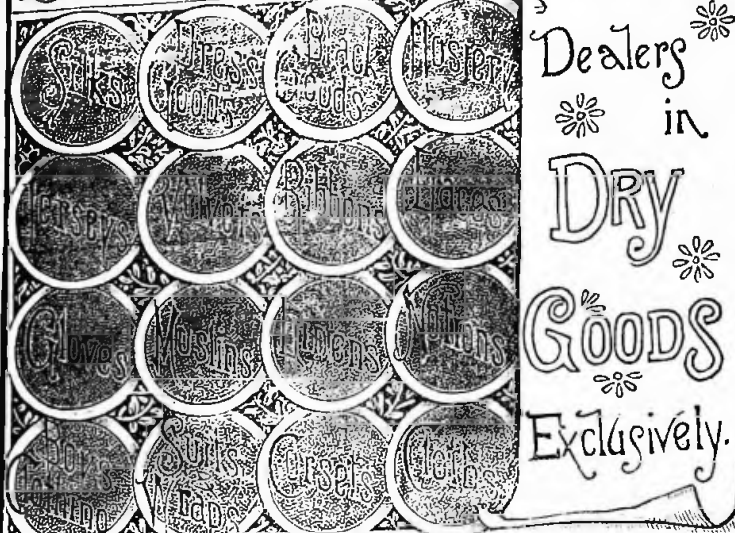 Silks
Dress
Goods
Black
Goods
Hosiery
Jerseys
Velvets
Ribbons
Laces
Gloves
Muslins
Linens
Notions
Boys
Suits
Wraps
Corsets
Cloths
Dealers
in
Dry
Goods
Exclusively.